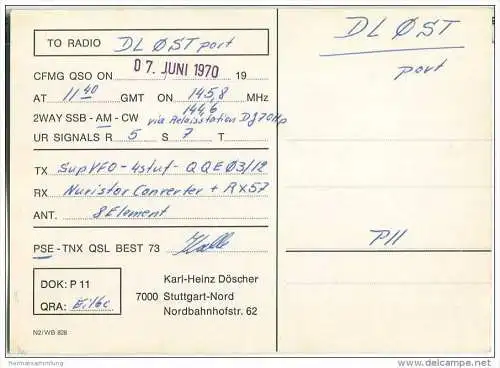 TO RADIO DL ØST port
CFMG QSO ON 07. JUNI 1970 19
AT 11 40 GMT ON 145,8 MHz
144,6
2WAY SSB - AM - CW via Relaisstation DJ7OHp
UR SIGNALS R 5 S 7 T
TX Sup VFO - 4stuf - QQE 03/12
RX Nuvistor Converter + RX57
ANT. 8 Element
PSE - TNX QSL BEST 73
DOK: P 11
QRA:
Karl-Heinz Döscher
7000 Stuttgart-Nord
Nordbahnhofstr. 62
N2/WB 828
DL ØST
port
P11
heimatsammlung
delcampe.net